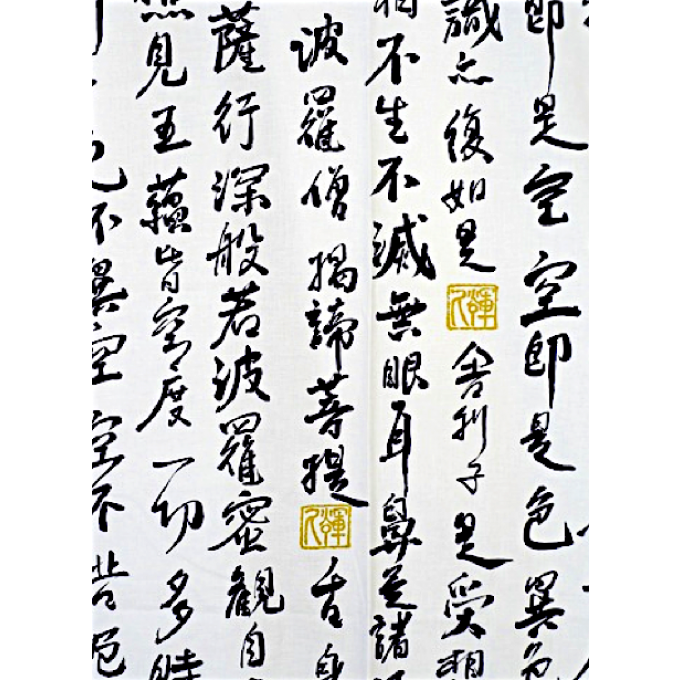 即是空空即是色異色
識亦復如是舍利子是受想
相不生不滅無眼耳鼻是諸
波羅僧揭諦菩提舌身
薩行深般若波羅蜜觀自
照見五蘊皆空度一切多時
不異空空不